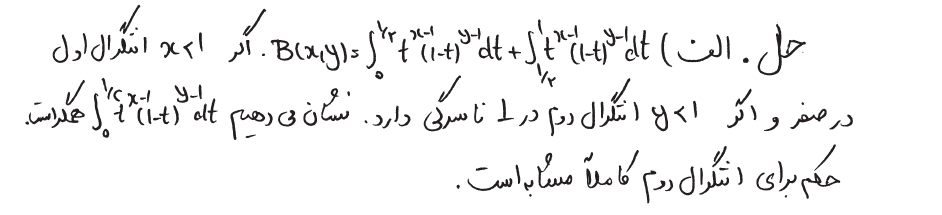 حل. الف) B(x,y)=∫₀^{1/2} t^{x-1}(1-t)^{y-1}dt + ∫_{1/2}^{1} t^{x-1}(1-t)^{y-1}dt. اگر x<1 انتگرال اول
در صفر و اگر y<1 انتگرال دوم در 1 ناسرگی دارد. نشان می دهیم ∫₀^{1/2} t^{x-1}(1-t)^{y-1}dt همگراست.
حکم برای انتگرال دوم کاملاً مشابه است.